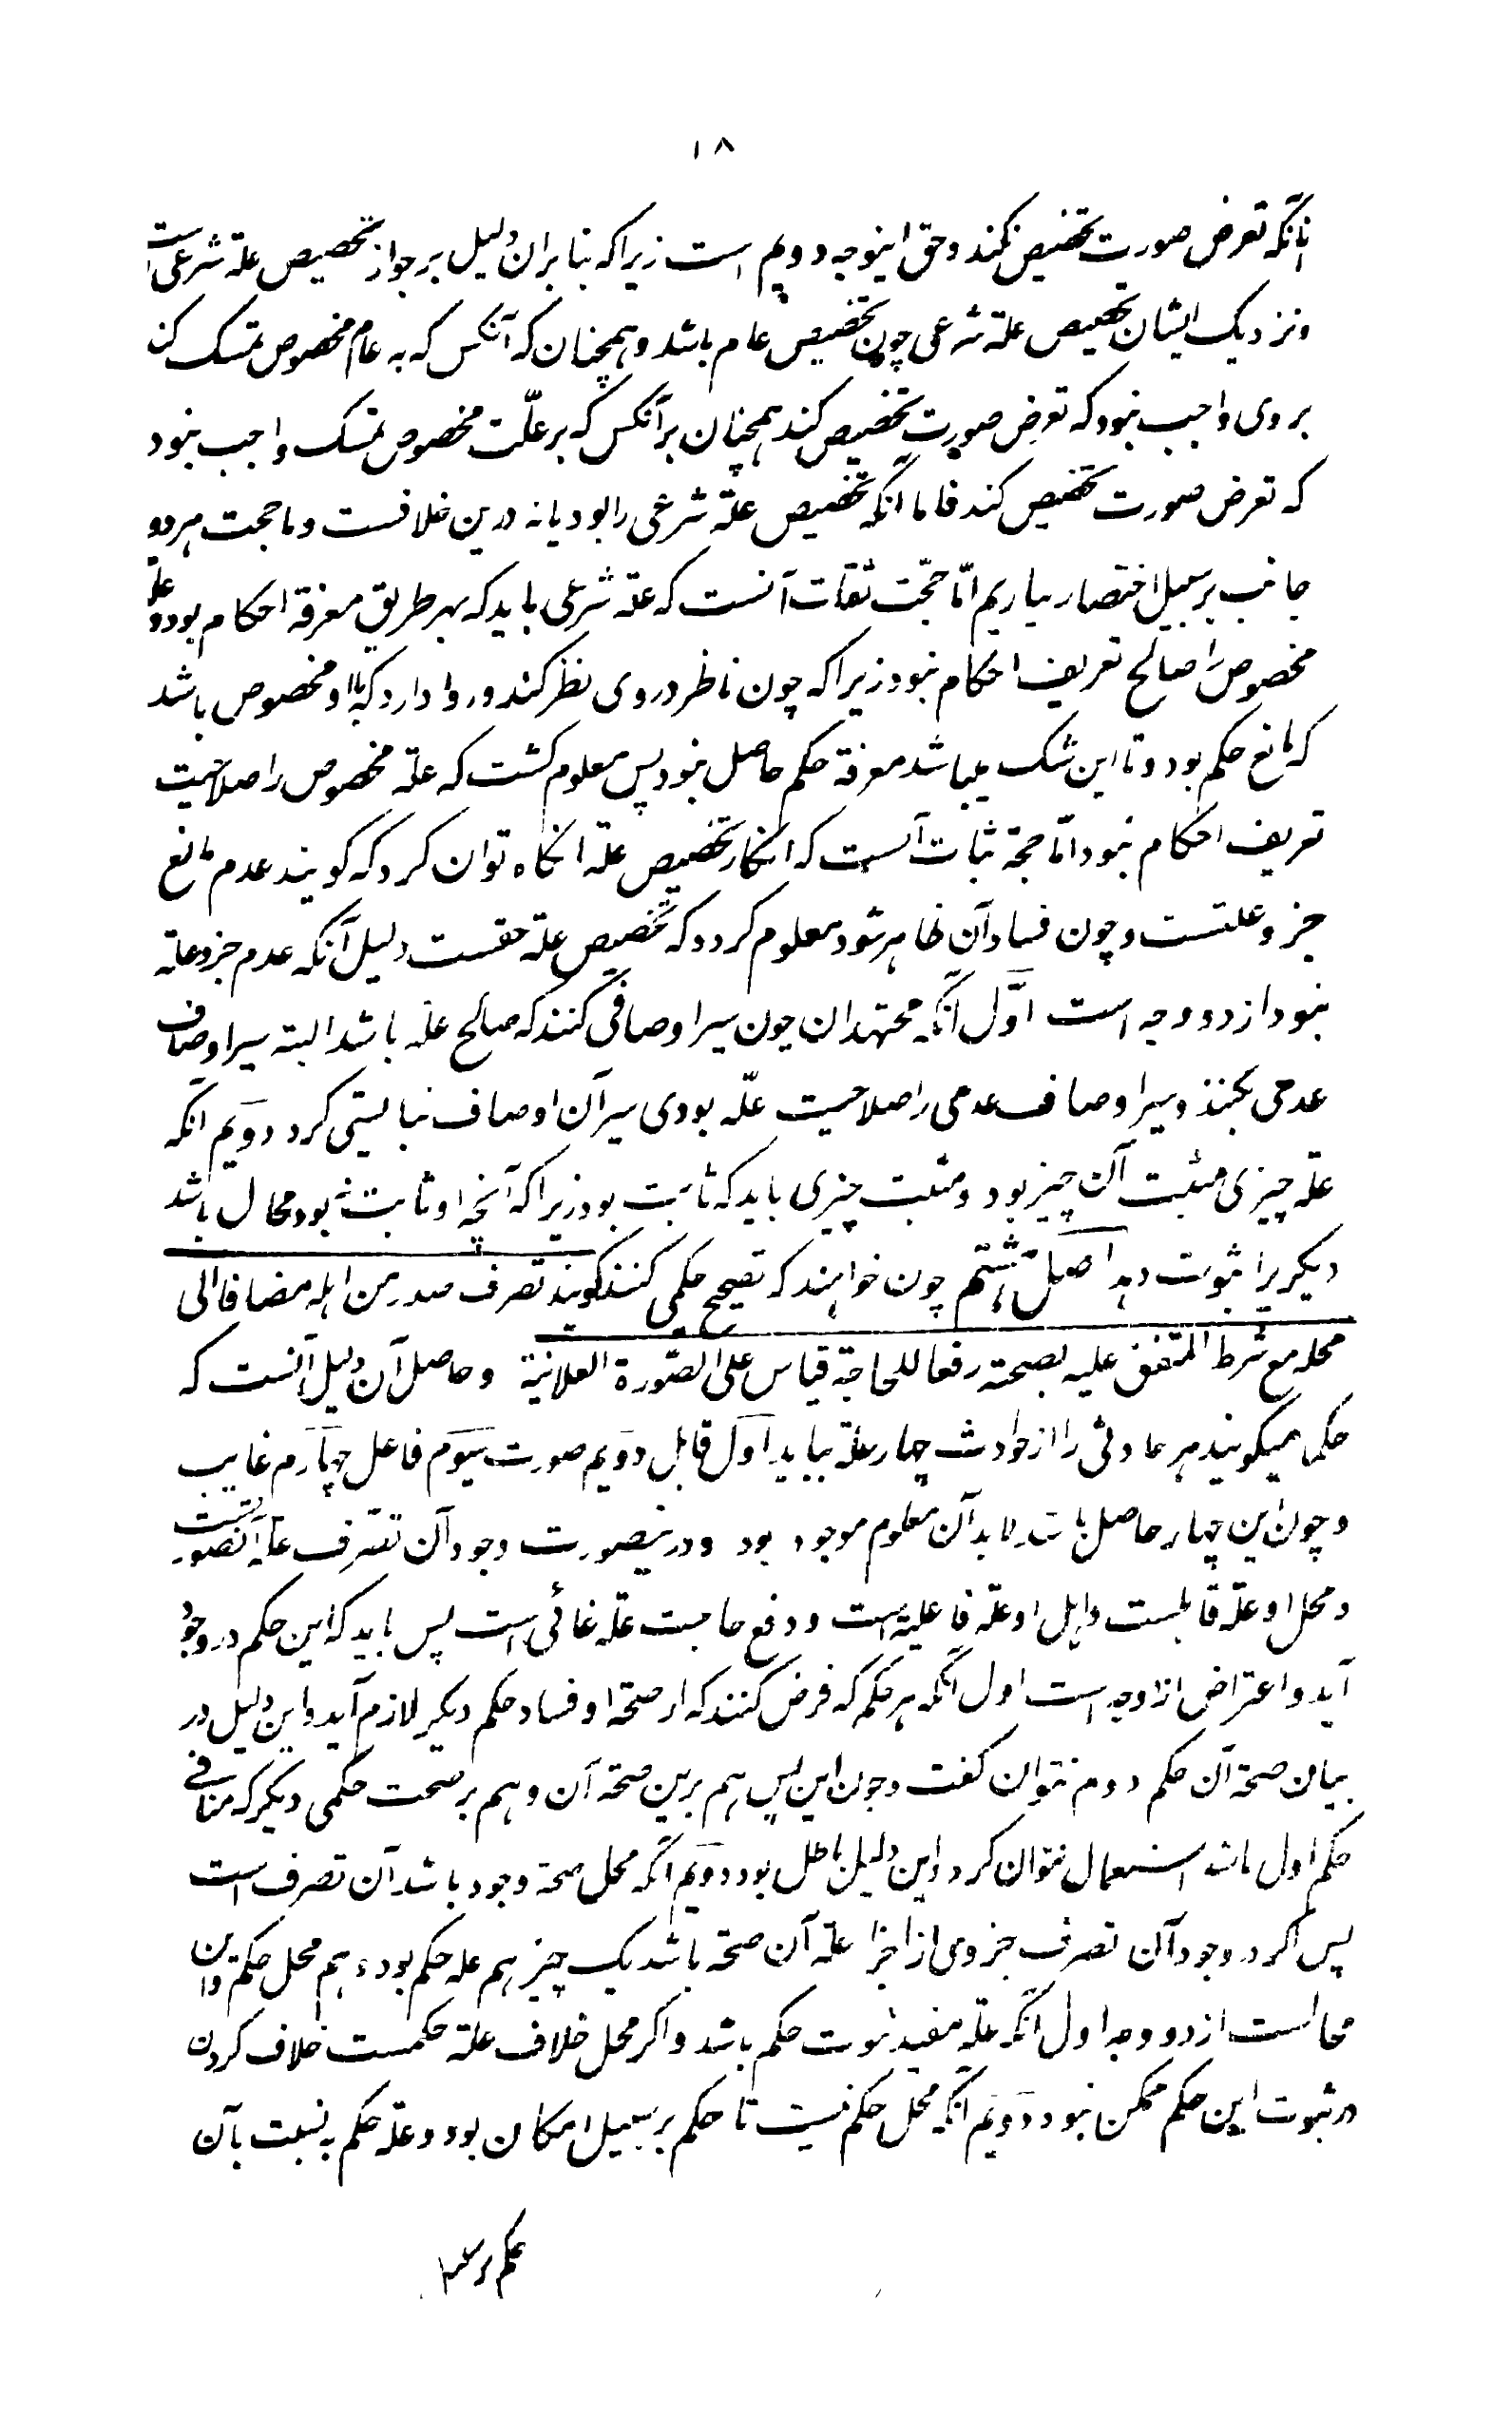 ۱۸
انکه تعرض صورت تخصیص نکند و حق اینوجه دویم است زیرا که بنا بران دلیل بر جواز تخصیص علة شرعی است
و نزدیک ایشان تخصیص علة شرعی چون تخصیص عام باشد و همچنان که آنکس که به عام مخصوص تمسک کند
بروی واجب نبود که تعرض صورت تخصیص کند همچنان برآنکس که بر علّت مخصوص تمسک واجب نبود
که تعرض صورت تخصیص کند فاما انکه تخصیص علة شرعی را بود یا نه درین خلافست و ما حجت هر دو
جانب بر سبیل اختصار بیاریم امّا حجّت نفات آنست که علة شرعی باید که بهر طریق معرفة احکام بود و علة
مخصوص را صالح تعریف احکام نبود زیرا که چون ناظر در وی نظر کند و روا دارد که او مخصوص باشد
که مانع حکم بود و تا این شک میباشد معرفة حکم حاصل نبود پس معلوم کشت که علة مخصوص را صلاحیت
تعریف احکام نبود امّا حجة ثبات آنست که انکار تخصیص علة انکاه توان کرد که کویند عدم مانع
جزو علتست و چون فساد آن ظاهر شود معلوم کردد که تخصیص علة حقست دلیل آنکه عدم جزو علة
نبود از دو وجه است اوّل انکه مجتهدان چون سیر اوصافی کنند که صالح علّه باشد البته سیر اوصاف
عدمی نکنند و سیر اوصاف عدمی را صلاحیت علّه بودی سیر آن اوصاف نبایستی کرد دویم انکه
علة چیزی مثبت آن چیز بود و مثبت چیزی باید که ثابت بود زیرا که آنچه او ثابت نبود محال باشد
دیکریرا ثبوت دهد اصل هشتم چون خواهند که تصحیح حکمی کنند کویند تصرف صدر من اهله مضافا الی
محله مع شرط المتفق علیه بصحته رفعا للحاجة قیاس علی الصّورة العلانیة و حاصل آن دلیل آنست که
حکما میکویند هر حادثی را از حوادث چهار علة بباید اول قابل دویم صورت سیوم فاعل چهارم غایب
و چون این چهار حاصل باشد لابد آن معلوم موجود بود و درینصورت وجود آن تصرف علة آنصورتست
و محل او علة قابلست و اهل او علة فاعلیة است و دفع حاجت علة غائی است پس باید که این حکم در وجود
آید و اعتراض از دو وجه است اول آنکه هر حکم که فرض کنند که از صحة او فساد حکم دیکر لازم آید و این دلیل در
بیان صحة آن حکم دوم نتوان کفت و چون این پس هم برین صحة آن و هم بر صحت حکمی دیکر که منافی
حکم اول باشد استعمال نتوان کرد و این دلیل باطل بود دویم آنکه محل صحة وجود باشد آن تصرف است
پس اکر در وجود آن تصرف جزوی از اجزا علة آن صحة باشد یک چیز هم علة حکم بود و هم محل حکم و این
محالست از دو وجه اول آنکه علّة مفید ثبوت حکم باشد و اکر محل خلاف علة حکمست خلاف کردن
در ثبوت این حکم ممکن نبود دویم انکه محل حکم نیست تا حکم بر سبیل امکان بود و علة حکم به نسبت بآن